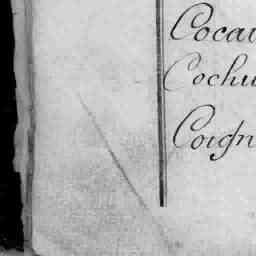 Cocau
Cochu
Coign